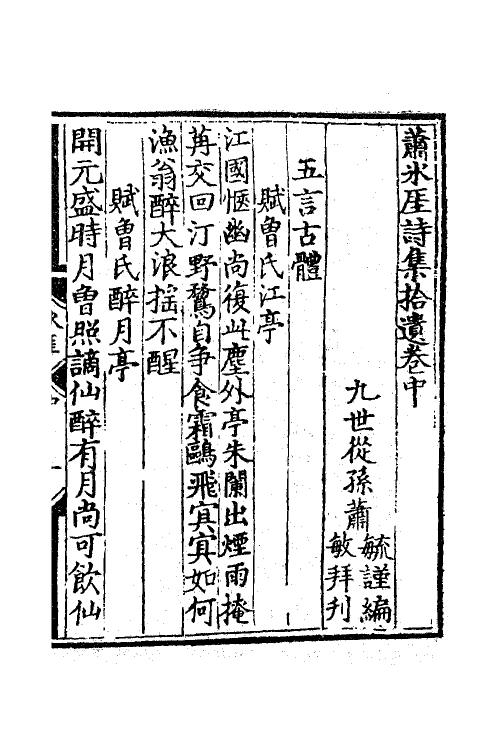 蕭氷厓詩集拾遺卷中
九世從孫蕭毓謹編
敏拜刋
五言古體
賦曽氏江亭
江國愜幽尚復此塵外亭朱闌出煙雨掩
苒交回汀野鶩自争食霜鷗飛冥冥如何
漁翁醉大浪揺不醒
賦曽氏醉月亭
開元盛時月曽照謫仙醉有月尚可飲仙